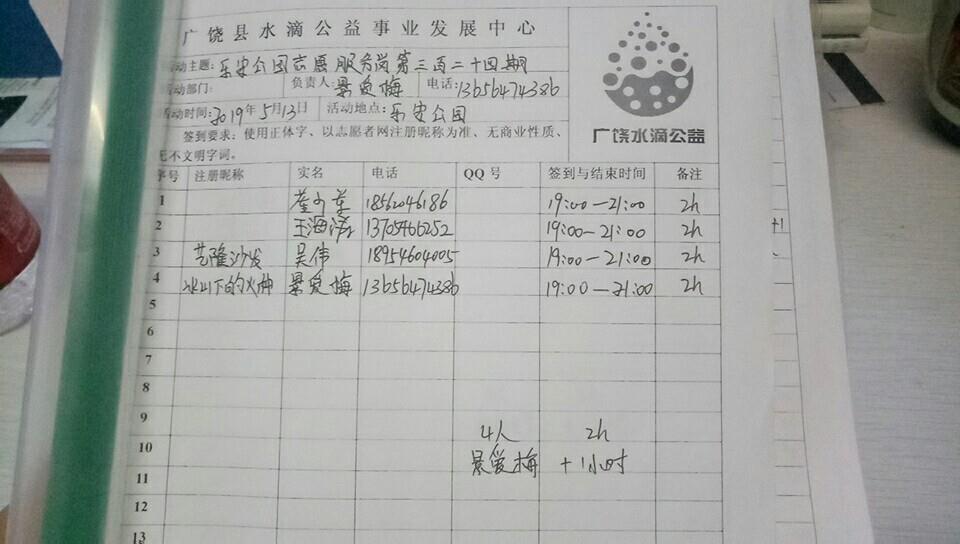 广饶县水滴公益事业发展中心
活动主题: 乐安公园志愿服务岗第三百二十四期
活动部门: 负责人: 景爱梅 电话: 13656474386
活动时间: 2019年5月13日 活动地点: 乐安公园
签到要求: 使用正体字、以志愿者网注册昵称为准、无商业性质、
无不文明字词。
广饶水滴公益
序号 注册昵称 实名 电话 QQ号 签到与结束时间 备注
1 18562046186 19:00—21:00 2h
2 13705466252 19:00—21:00 2h
3 艺隆沙发 吴伟 18954604005 19:00—21:00 2h
4 冰山下的火种 景爱梅 13656474386 19:00—21:00 2h
5
6
7
8
9
4人 2h
10
景爱梅 +1小时
11
12
13
+1